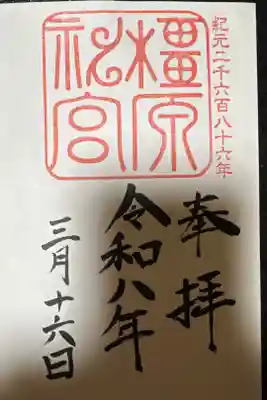 紀元二千六百八十六年
橿原
神宮
奉拝
令和八年
三月十六日